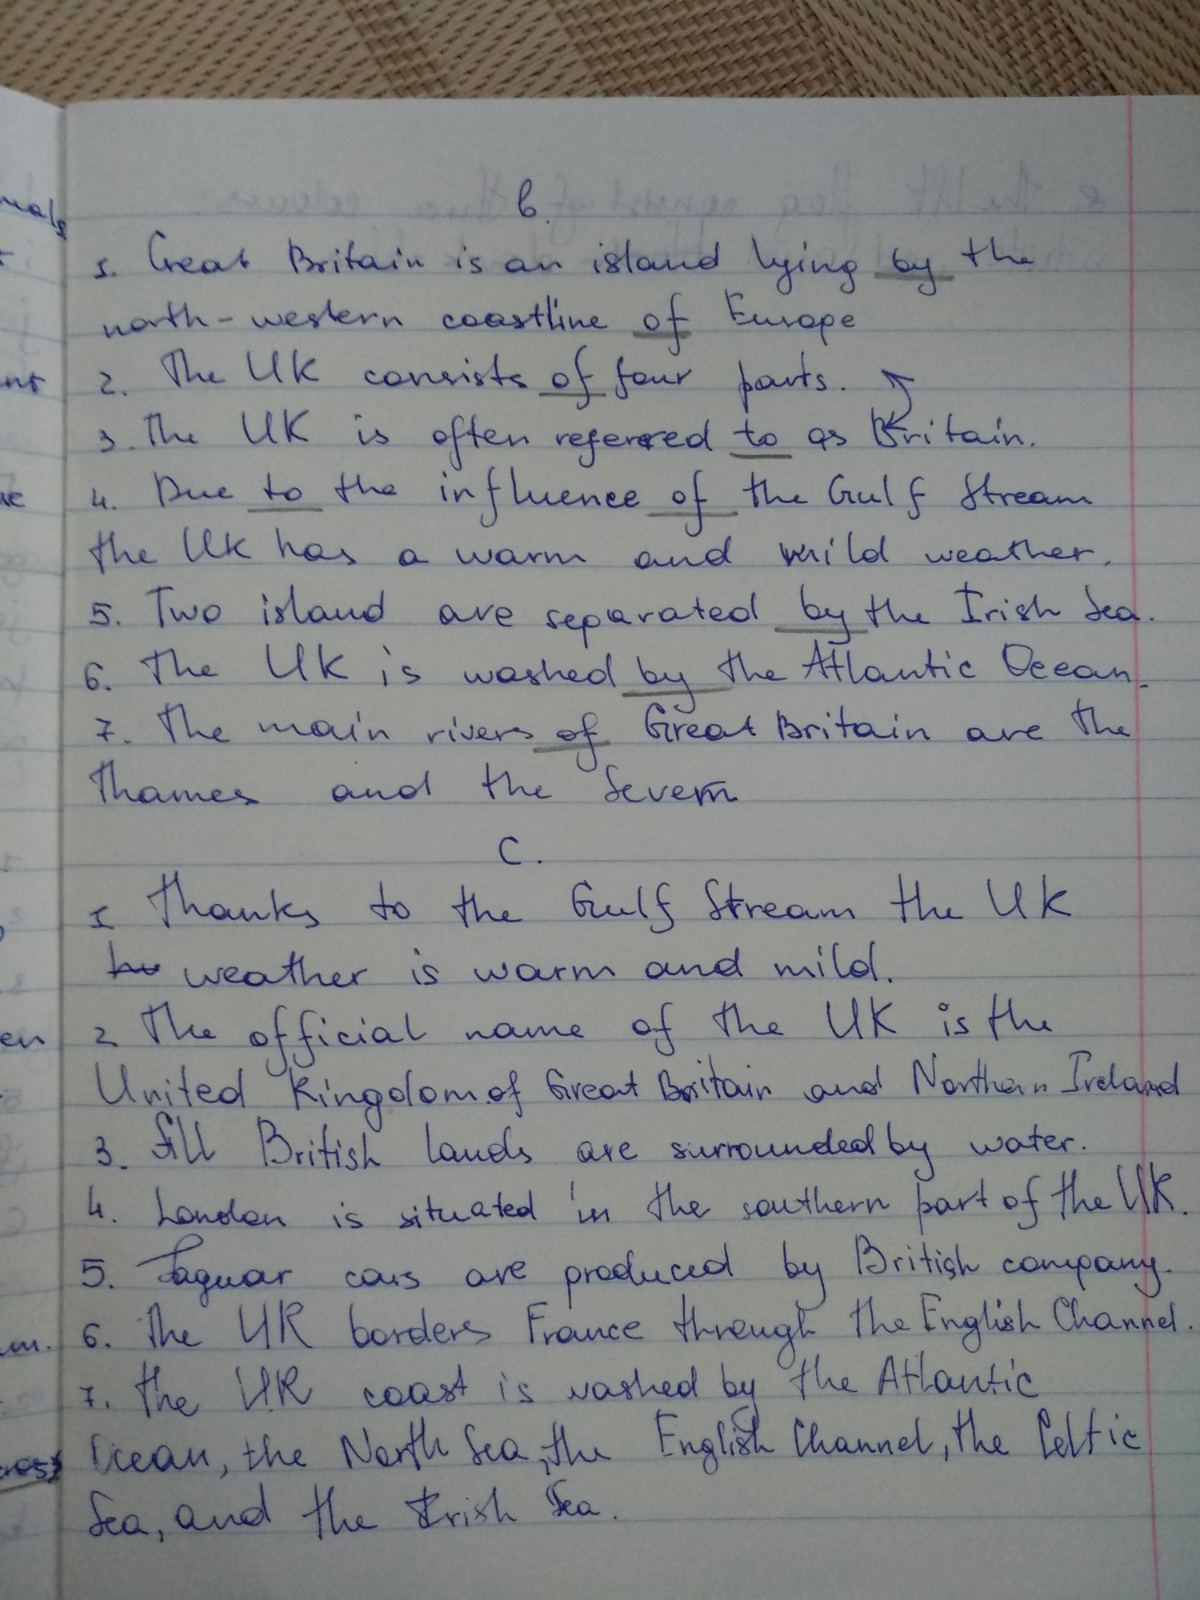 B.
1. Great Britain is an island lying by the
north-western coastline of Europe
2. The UK consists of four parts.
3. The UK is often refered to as Britain.
4. Due to the influence of the Gulf Stream
the UK has a warm and mild weather.
5. Two island are separated by the Irish Sea.
6. The UK is washed by the Atlantic Ocean.
7. The main rivers of Great Britain are the
Thames and the Severn
C.
1 Thanks to the Gulf Stream the UK
weather is warm and mild.
2 The official name of the UK is the
United Kingdom of Great Britain and Northern Ireland
3. All British lands are surrounded by water.
4. London is situated in the southern part of the UK.
5. Jaguar cars are produced by British company.
6. The UK borders France through the English Channel.
7. The UK coast is washed by the Atlantic
Ocean, the North Sea, the English Channel, the Celtic
Sea, and the Irish Sea.